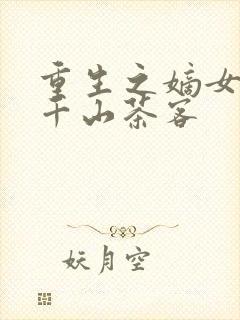 重生之嫡女
千山茶客
妖月空